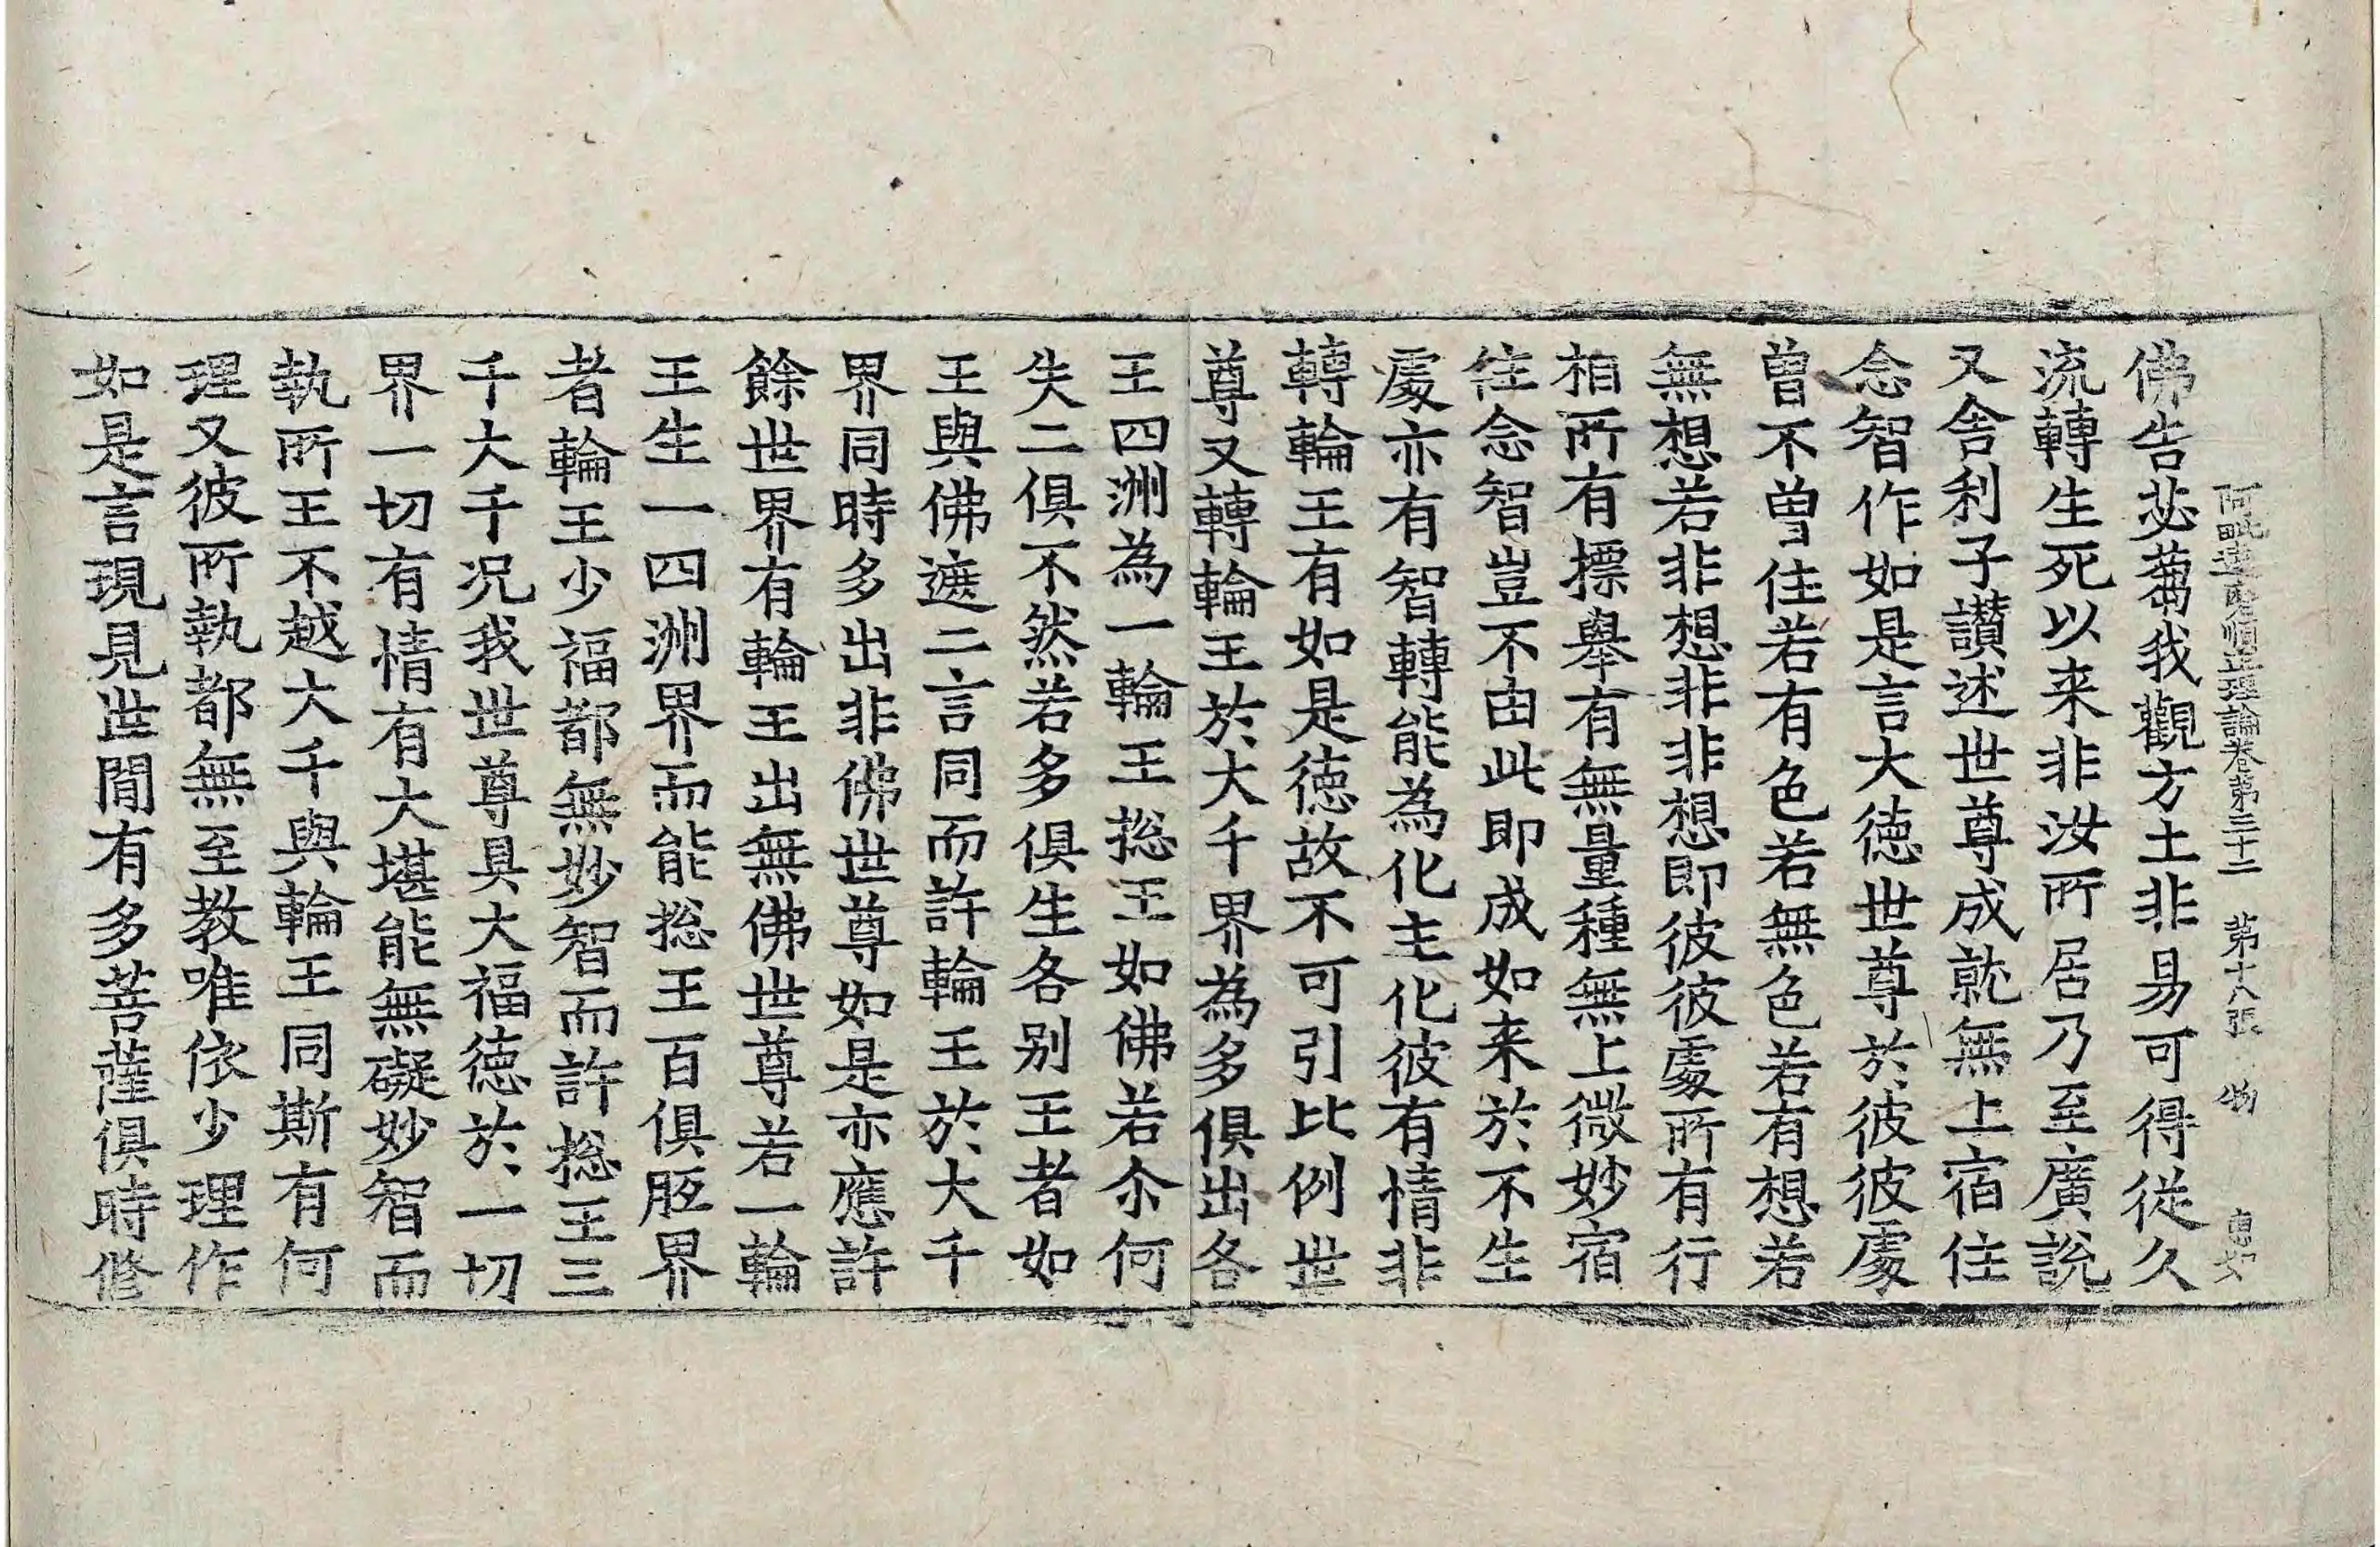 阿毗達磨順正理論卷第三十二 第十八張 物
佛告苾蒭我觀方土非易可得從久
流轉生死以来非汝所居乃至廣說
又舍利子讃述世尊成就無上宿住
念智作如是言大徳世尊於彼彼處
曾不曾住若有色若無色若有想若
無想若非想非非想即彼彼處所有行
相所有摽舉有無量種無上微妙宿
住念智豈不由此即成如来於不生
處亦有智轉能為化主化彼有情非
轉輪王有如是徳故不可引比例世
尊又轉輪王於大千界為多俱出各
王四洲為一輪王捴王如佛若尒何
失二俱不然若多俱生各别王者如
王與佛遮二言同而許輪王於大千
界同時多出非佛世尊如是亦應許
餘世界有輪王出無佛世尊若一輪
王生一四洲界而能捴王百俱胝界
者輪王少福都無妙智而許捴王三
千大千况我世尊具大福徳於一切
界一切有情有大堪能無礙妙智而
執所王不越大千與輪王同斯有何
理又彼所執都無至教唯依少理作
如是言現見世間有多菩薩俱時修